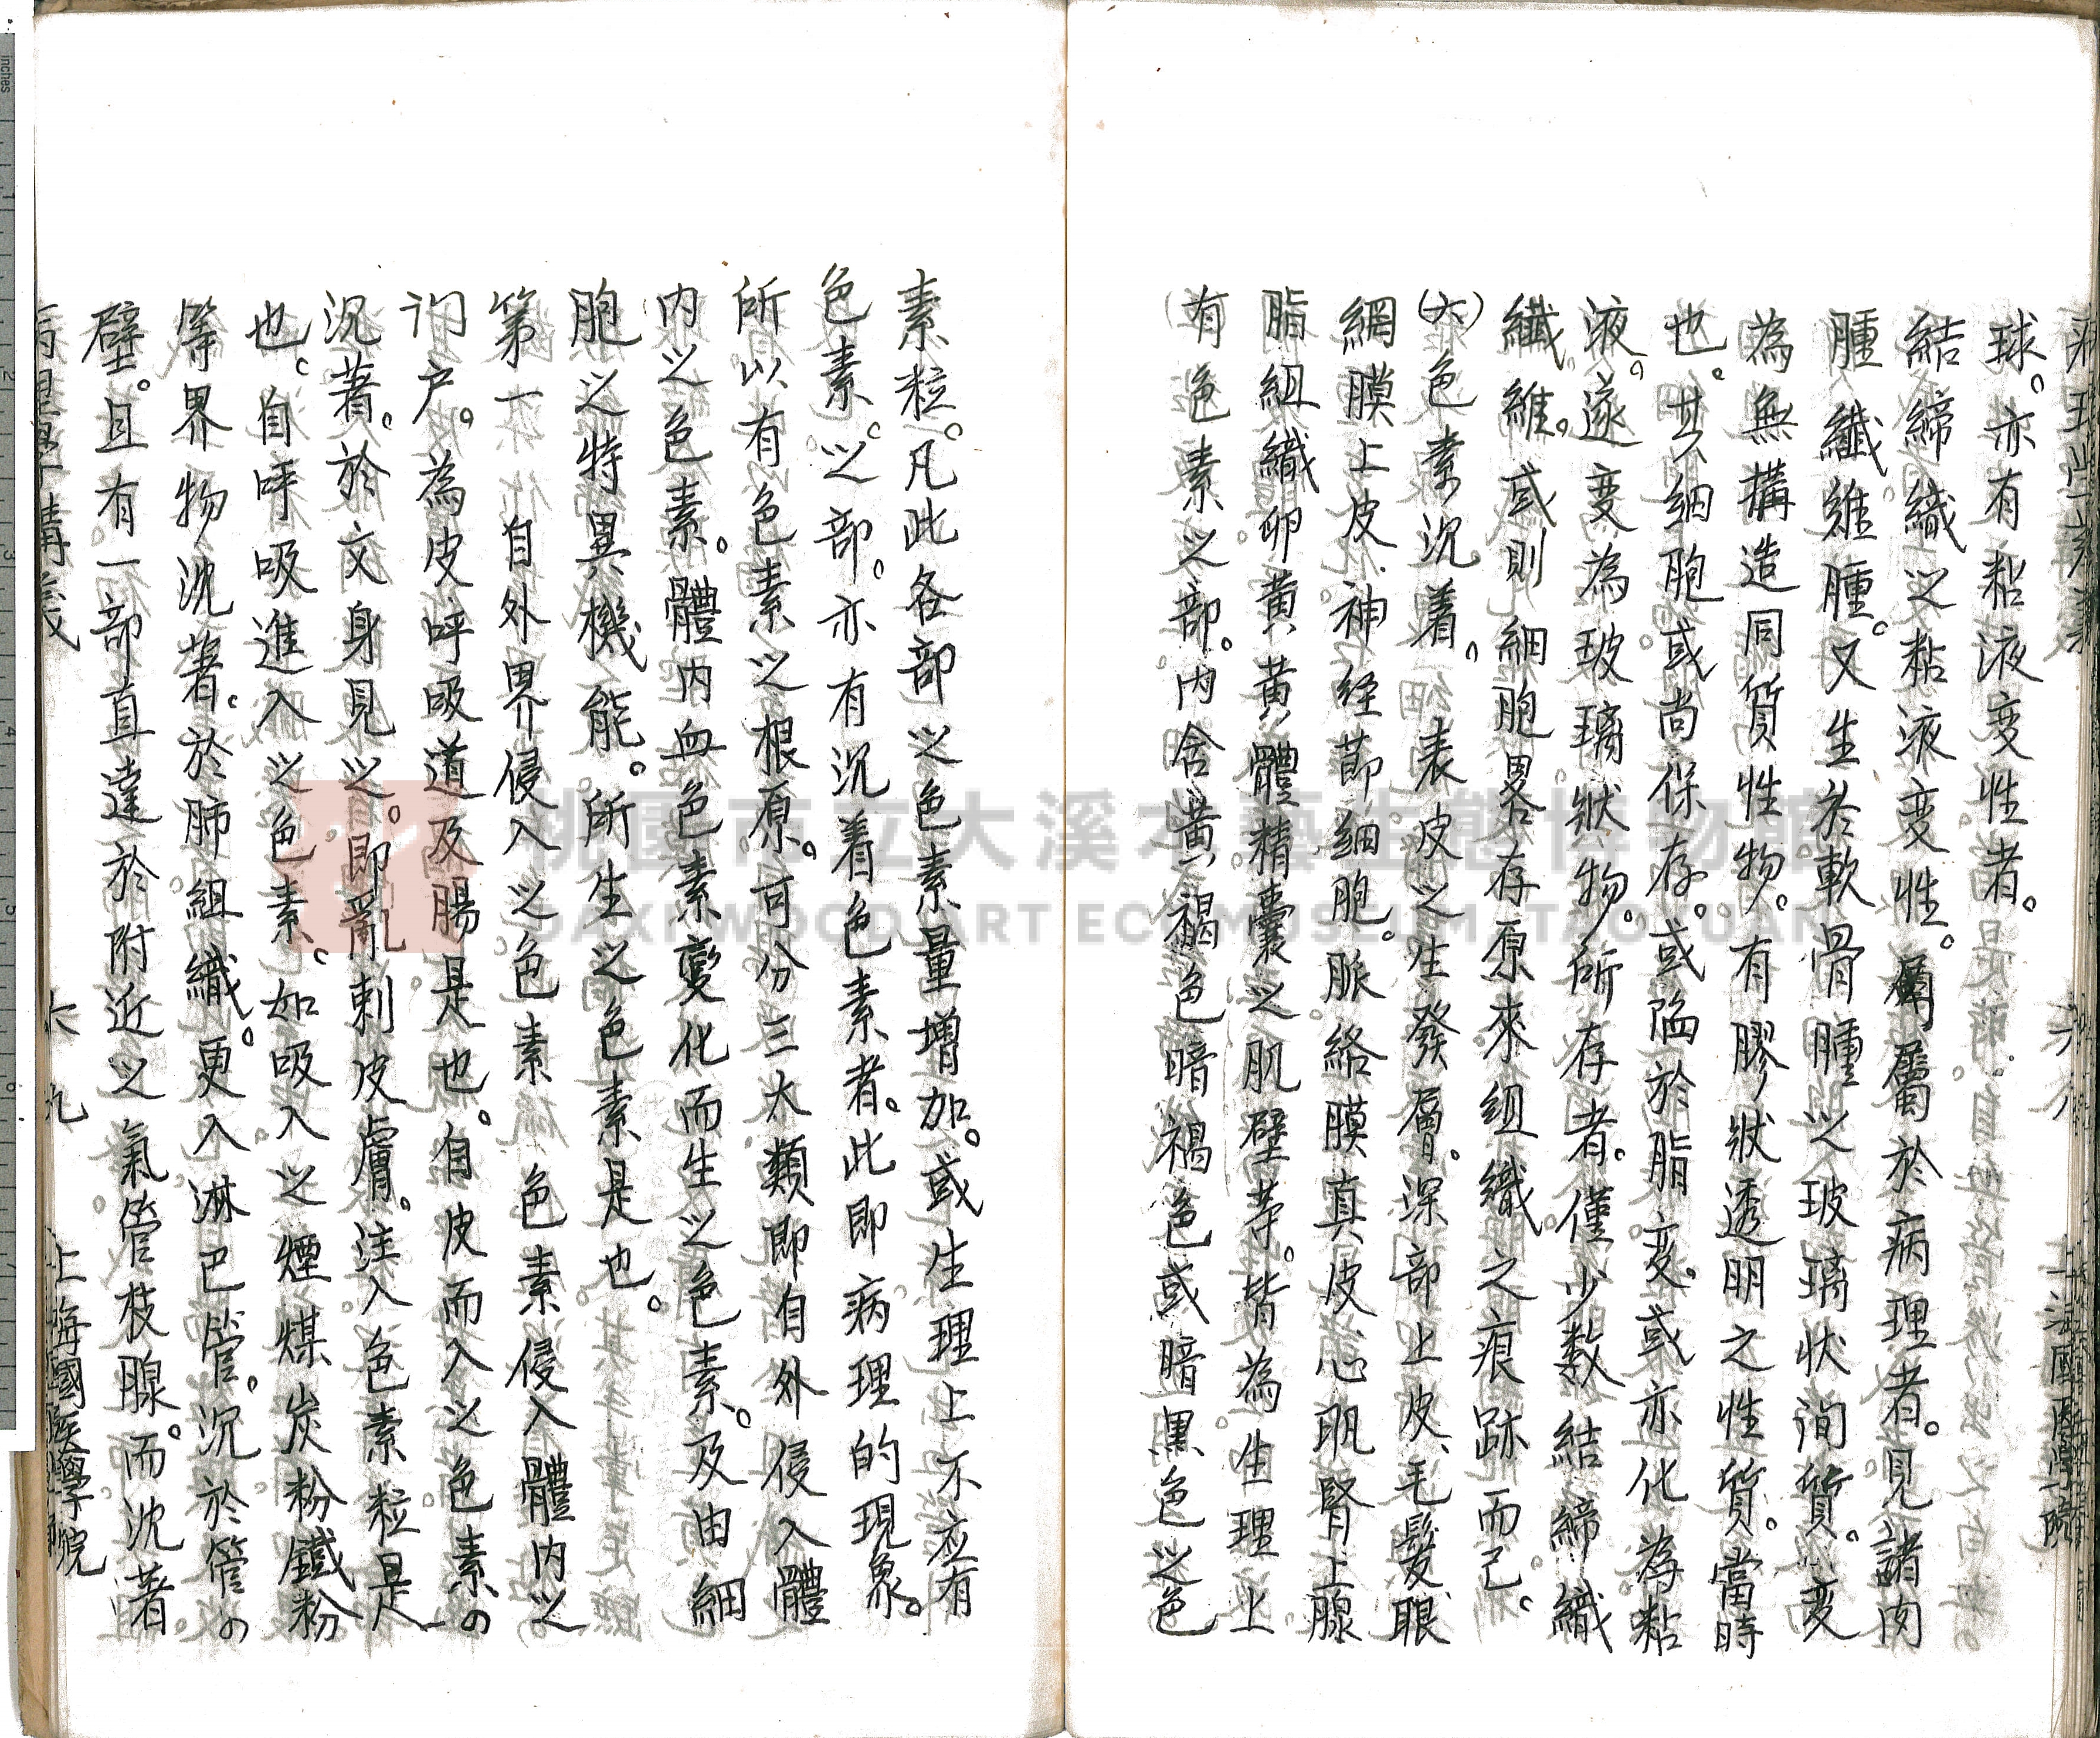 球。亦有粘液变性者。
結締織之粘液变性。屬屬於病理者。見諸肉
腫纖維腫。又生於軟骨腫之玻璃状间質。变
為無搆造同質性物。有膠狀透明之性質。當時
也。其細胞或尚保存。或陷於脂变。或亦化為粘
液。遂变為玻璃狀物。所存者。僅少数結締織
纖維。或則細胞畧存原來組織之痕跡而已。
(六)色素沉着。 表皮之生發層。深部上皮、毛髮、眼
網膜上皮、神经節細胞。脈絡膜真皮、心肌腎上腺
脂組織卵黄黄體精囊之肌壁等。皆為生理上
有色素之部。内含黄褐色暗褐色或暗黒色之色
素粒。凡此各部之色素量增加。或生理上不应有
色素。之部。亦有沉着色素者。此即病理的現象。
所以有色素之根原。可分三大類即自外侵入體
内之色素。體内血色素變化而生之色素。及由細
胞之特異機能。所生之色素是也。
第一 自外界侵入之色素 色素侵入體内之
门户。為皮呼吸道及腸是也。自皮而入之色素の
沉著。於文身見之。即亂刺皮膚。注入色素粒是
也。自呼吸進入之色素。如吸入之煙煤炭粉鐵粉
等界物沈著。於肺組織。更入淋巴管。沉於管の
壁。且有一部直達於附近之氣管枝腺。而沈著
六九
上海國医學院
桃園市立大溪木藝生態博物館
DAXI WOOD ART ECOMUSEUM, TAOYUAN
inches